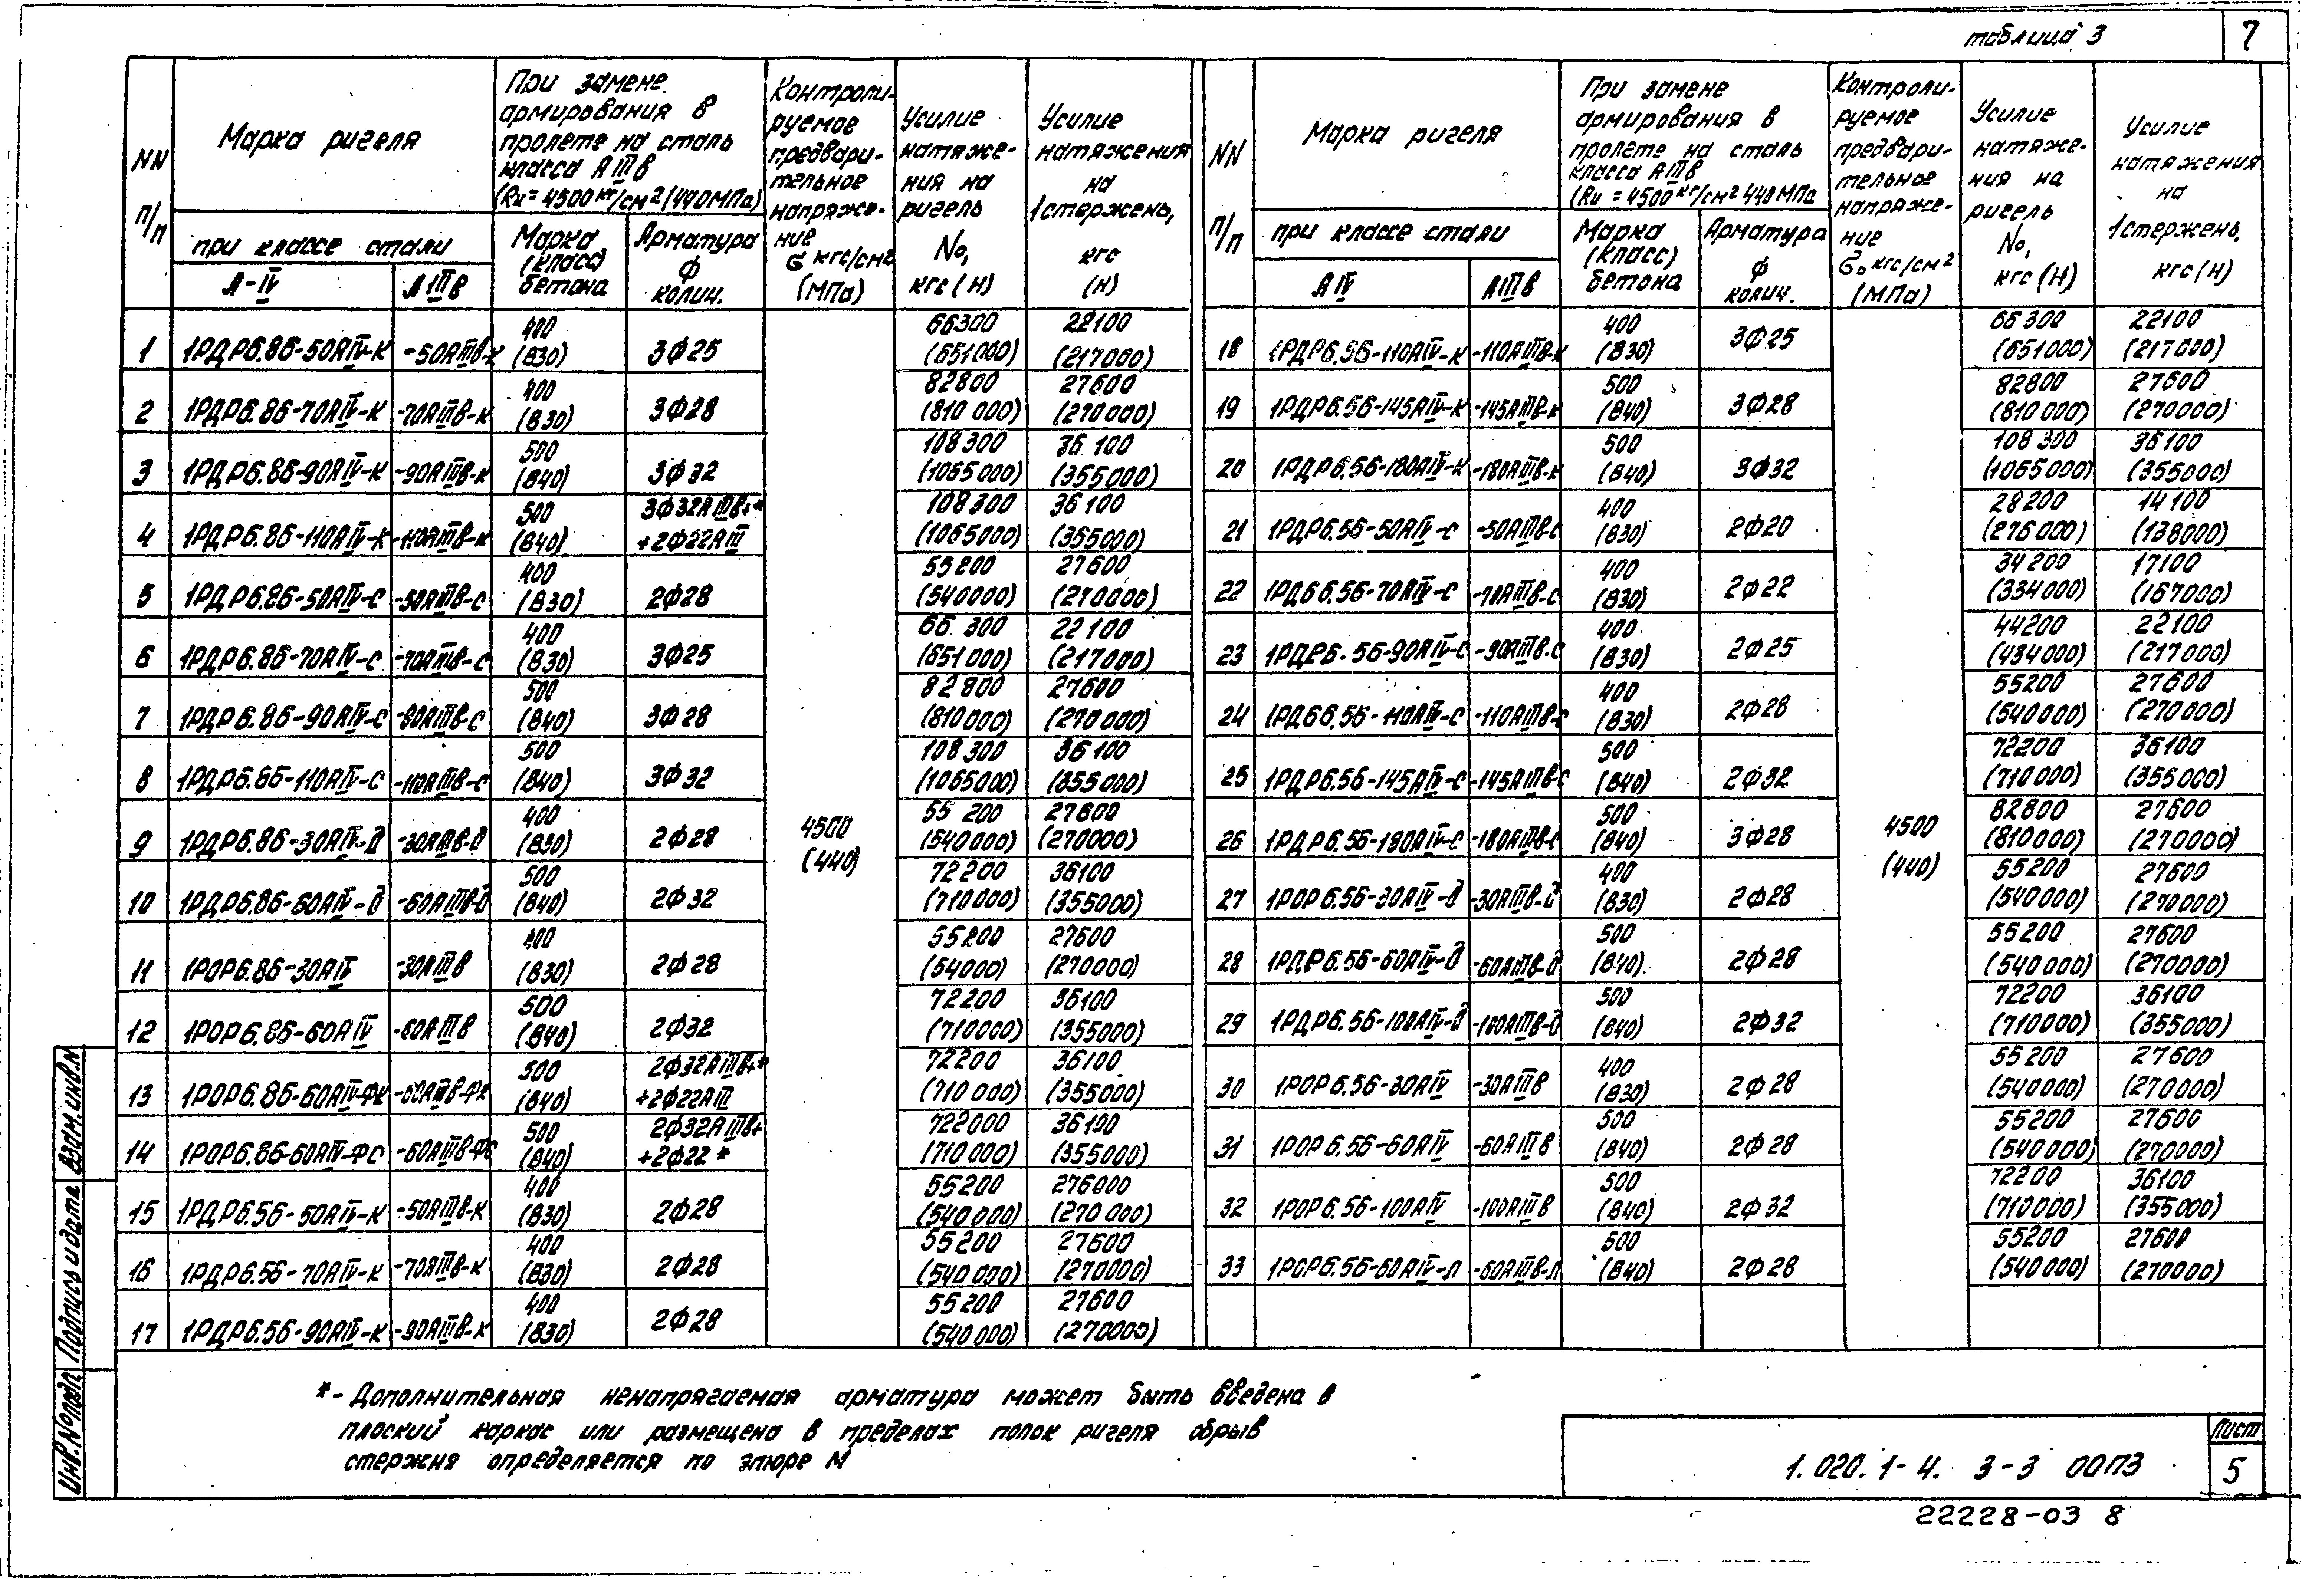 таблица 3
7
NN п/п
Марка ригеля
при классе стали
А-IV
АIIIв
При замене
армирования в
пролете на сталь
класса АIIIв
(Rи=4500 кг/см2 (440МПа)
Марка (класс) бетона
Арматура ф колич.
Контролируемое предварительное напряжение
σ кгс/см2 (МПа)
Усилие натяжения на ригель No, кгс (Н)
Усилие натяжения на 1стержень, кгс (Н)
NN п/п
Марка ригеля
при классе стали
АIV
АIIIв
При замене
армирования в
пролете на сталь
класса АIIIв
(Rи =4500 кг/см2 440МПа
Марка (класс) бетона
Арматура ф колич.
Контролируемое предварительное напряжение
σо кгс/см2 (МПа)
Усилие натяжения на ригель No, кгс (Н)
Усилие натяжения на 1стержень, кгс (Н)
1 1РДР6.86-50АIV-К -50АIIIв-К 400 (В30) 3ф25 66300 (651000) 22100 (217000)
2 1РДР6.86-70АIV-К -70АIIIв-К 400 (В30) 3ф28 82800 (810 000) 27600 (270000)
3 1РДР6.86-90АIV-К -90АIIIв-К 500 (В40) 3ф32 108300 (1065000) 36 100 (355000)
4 1РДР6.86-110АIV-К -110АIIIв-К 500 (В40) 3ф32АIIIв+* +2ф22АIII 108300 (1065000) 36100 (355000)
5 1РДР6.86-50АIV-С -50АIIIв-С 400 (В30) 2ф28 55200 (540000) 27600 (270000)
6 1РДР6.86-70АIV-С -70АIIIв-С 400 (В30) 3ф25 66.300 (651000) 22100 (217000)
7 1РДР6.86-90АIV-С -90АIIIв-С 500 (В40) 3ф28 82800 (810000) 27600 (270000)
8 1РДР6.86-110АIV-С -110АIIIв-С 500 (В40) 3ф32 108300 (1065000) 36100 (355000)
9 1РДР6.86-30АIV-Д -30АIIIв-д 400 (В30) 2ф28 55 200 (540000) 27600 (270000)
10 1РДР6.86-60АIV-д -60АIIIв-д 500 (В40) 2ф32 72200 (710000) 36100 (355000)
11 1РОР6.86-30АIV -30АIIIв 400 (В30) 2ф28 55200 (54000) 27600 (270000)
12 1РОР6.86-60АIV -60АIIIв 500 (В40) 2ф32 72200 (710000) 36100 (355000)
13 1РОР6.86-60АIV-ФК -60АIIIв-ФК 500 (В40) 2ф32АIIIв+* +2ф22АIII 72200 (710 000) 36100 (355000)
14 1РОР6.86-60АIV-ФС -60АIIIв-ФС 500 (В40) 2ф32АIIIв+ +2ф22* 722000 (710000) 36100 (355000)
15 1РДР6.56-50АIV-К -50АIIIв-К 400 (В30) 2ф28 55200 (540000) 276000 (270 000)
16 1РДР6.56-70АIV-К -70АIIIв-К 400 (В30) 2ф28 55200 (540000) 27600 (270000)
17 1РДР6.56-90АIV-К -90АIIIв-К 400 (В30) 2ф28 55200 (540000) 27600 (270000)
4500 (440)
18 1РДР6.56-110АIV-К -110АIIIв-К 400 (В30) 3ф25 66300 (651000) 22100 (217000)
19 1РДР6.56-145АIV-К -145АIIIв-К 500 (В40) 3ф28 82800 (810000) 27600 (270000)
20 1РДР6.56-180АIV-К -180АIIIв-К 500 (В40) 3ф32 108300 (1065000) 36100 (355000)
21 1РДР6.56-50АIV-С -50АIIIв-С 400 (В30) 2ф20 28200 (276000) 14100 (138000)
22 1РД66.56-70АIV-С -70АIIIв-С 400 (В30) 2ф22 34200 (334000) 17100 (167000)
23 1РДР6.56-90АIV-С -90АIIIв-С 400 (В30) 2ф25 44200 (434000) 22100 (217000)
24 1РД66.56-110АIV-С -110АIIIв-С 400 (В30) 2ф28 55200 (540000) 27600 (270000)
25 1РДР6.56-145АIV-С -145АIIIв-С 500 (В40) 2ф32 72200 (710000) 36100 (355000)
26 1РДР6.56-180АIV-С -180АIIIв-С 500 (В40) 3ф28 82800 (810000) 27600 (270000)
27 1РОР6.56-30АIV-д -30АIIIв-д 400 (В30) 2ф28 55200 (540000) 27600 (270000)
28 1РДР6.56-60АIV-д -60АIIIв-д 500 (В40) 2ф28 55200 (540000) 27600 (270000)
29 1РДР6.56-100АIV-д -100АIIIв-д 500 (В40) 2ф32 72200 (710000) 36100 (355000)
30 1РОР6.56-30АIV -30АIIIв 400 (В30) 2ф28 55200 (540000) 27600 (270000)
31 1РОР6.56-60АIV -60АIIIв 500 (В40) 2ф28 55200 (540000) 27600 (270000)
32 1РОР6.56-100АIV -100АIIIв 500 (В40) 2ф32 72200 (710000) 36100 (355000)
33 1РОР6.56-60АIV-л -60АIIIв-л 500 (В40) 2ф28 55200 (540000) 27600 (270000)
4500 (440)
*- Дополнительная ненапрягаемая арматура может быть введена в
плоский каркас или размещена в пределах полок ригеля обрыв
стержня определяется по эпюре М
Инв.№подл. Подпись и дата Взам.инв.N
1.020.1-4. 3-3 00ПЗ
Лист
5
22228-03 8